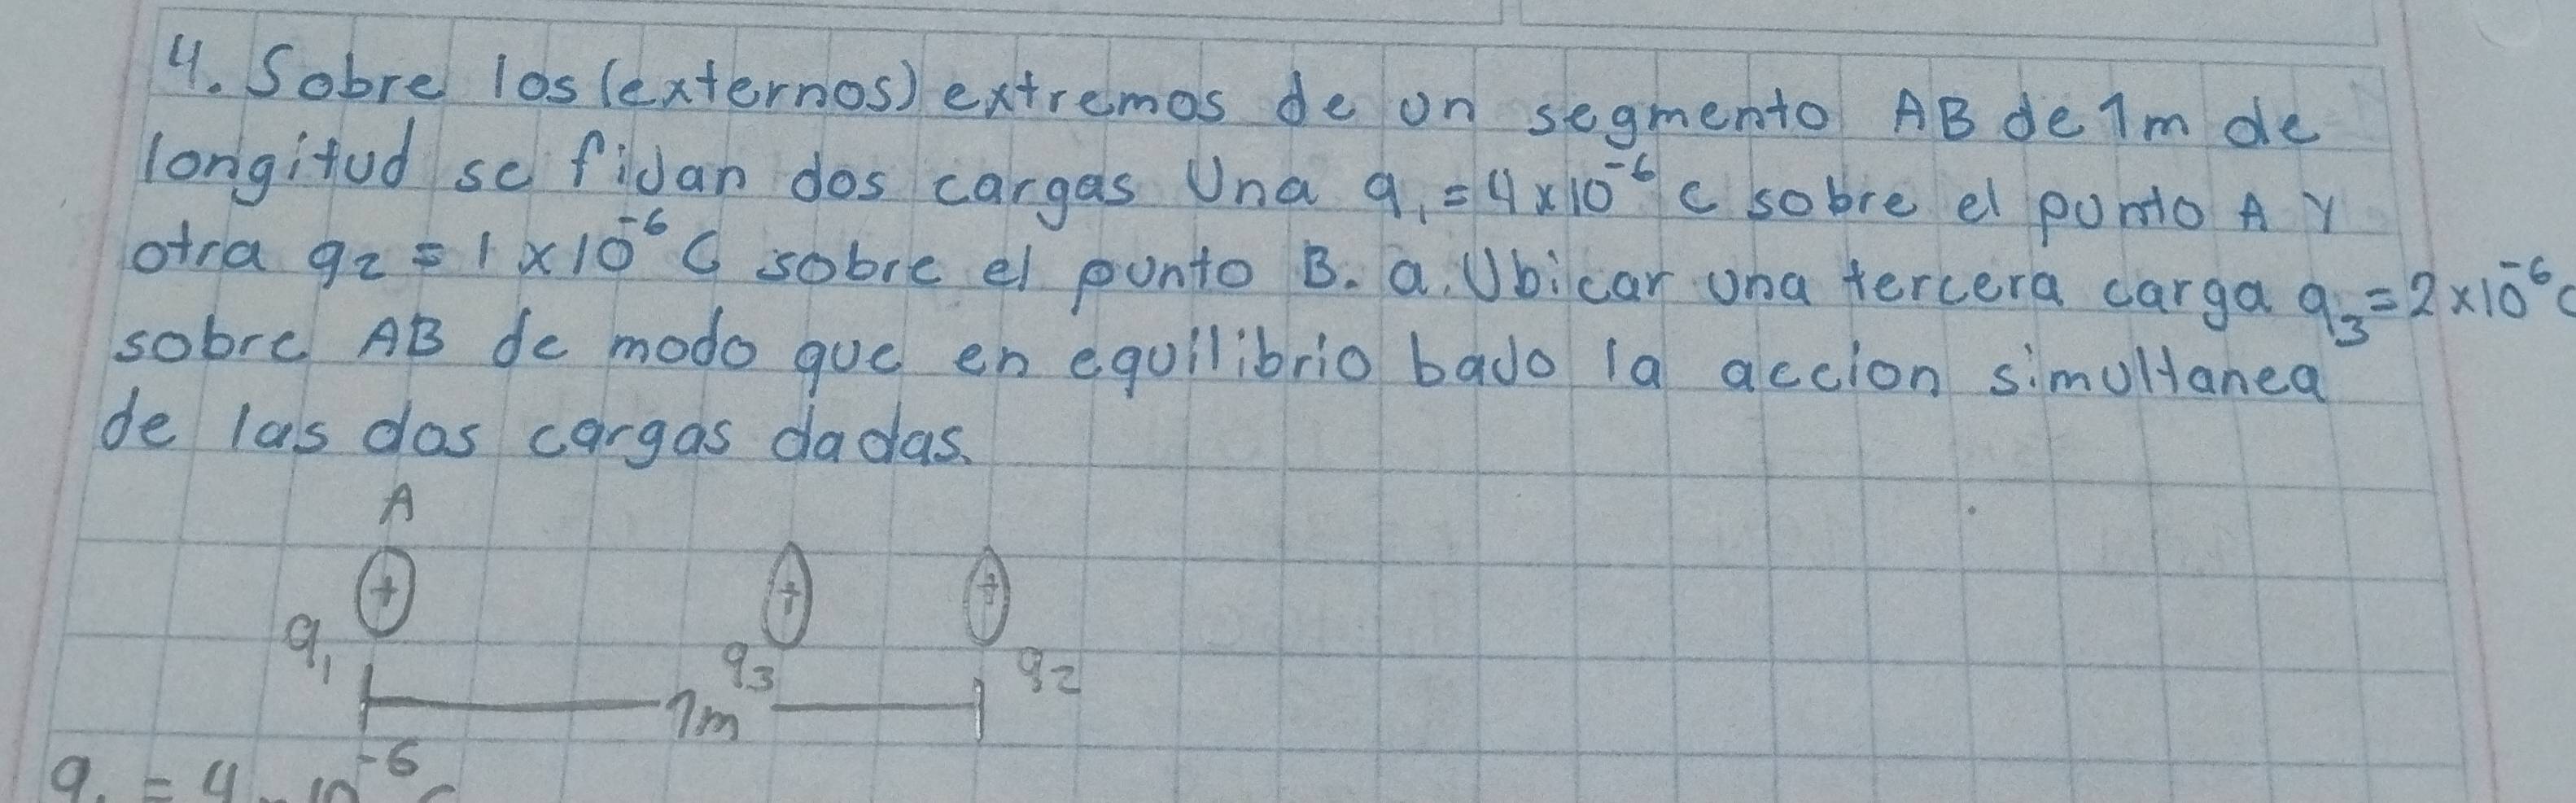 4. Sobre los (externos) extremos de un segmento AB de 1m de
longitud se fiJan dos cargas Una q₁ = 4x10⁻⁶ C sobre el punto A y
otra q₂ = 1 x 10⁻⁶ C sobre el punto B. a. Ubicar una tercera carga q₃ = 2x10⁻⁶ C
sobre AB de modo que en equilibrio baJo la accion simultanea
de las dos cargas dadas.
A
+ + +
q₁ q₃ q₂
1m
q₁ = 4 x 10⁻⁶ C